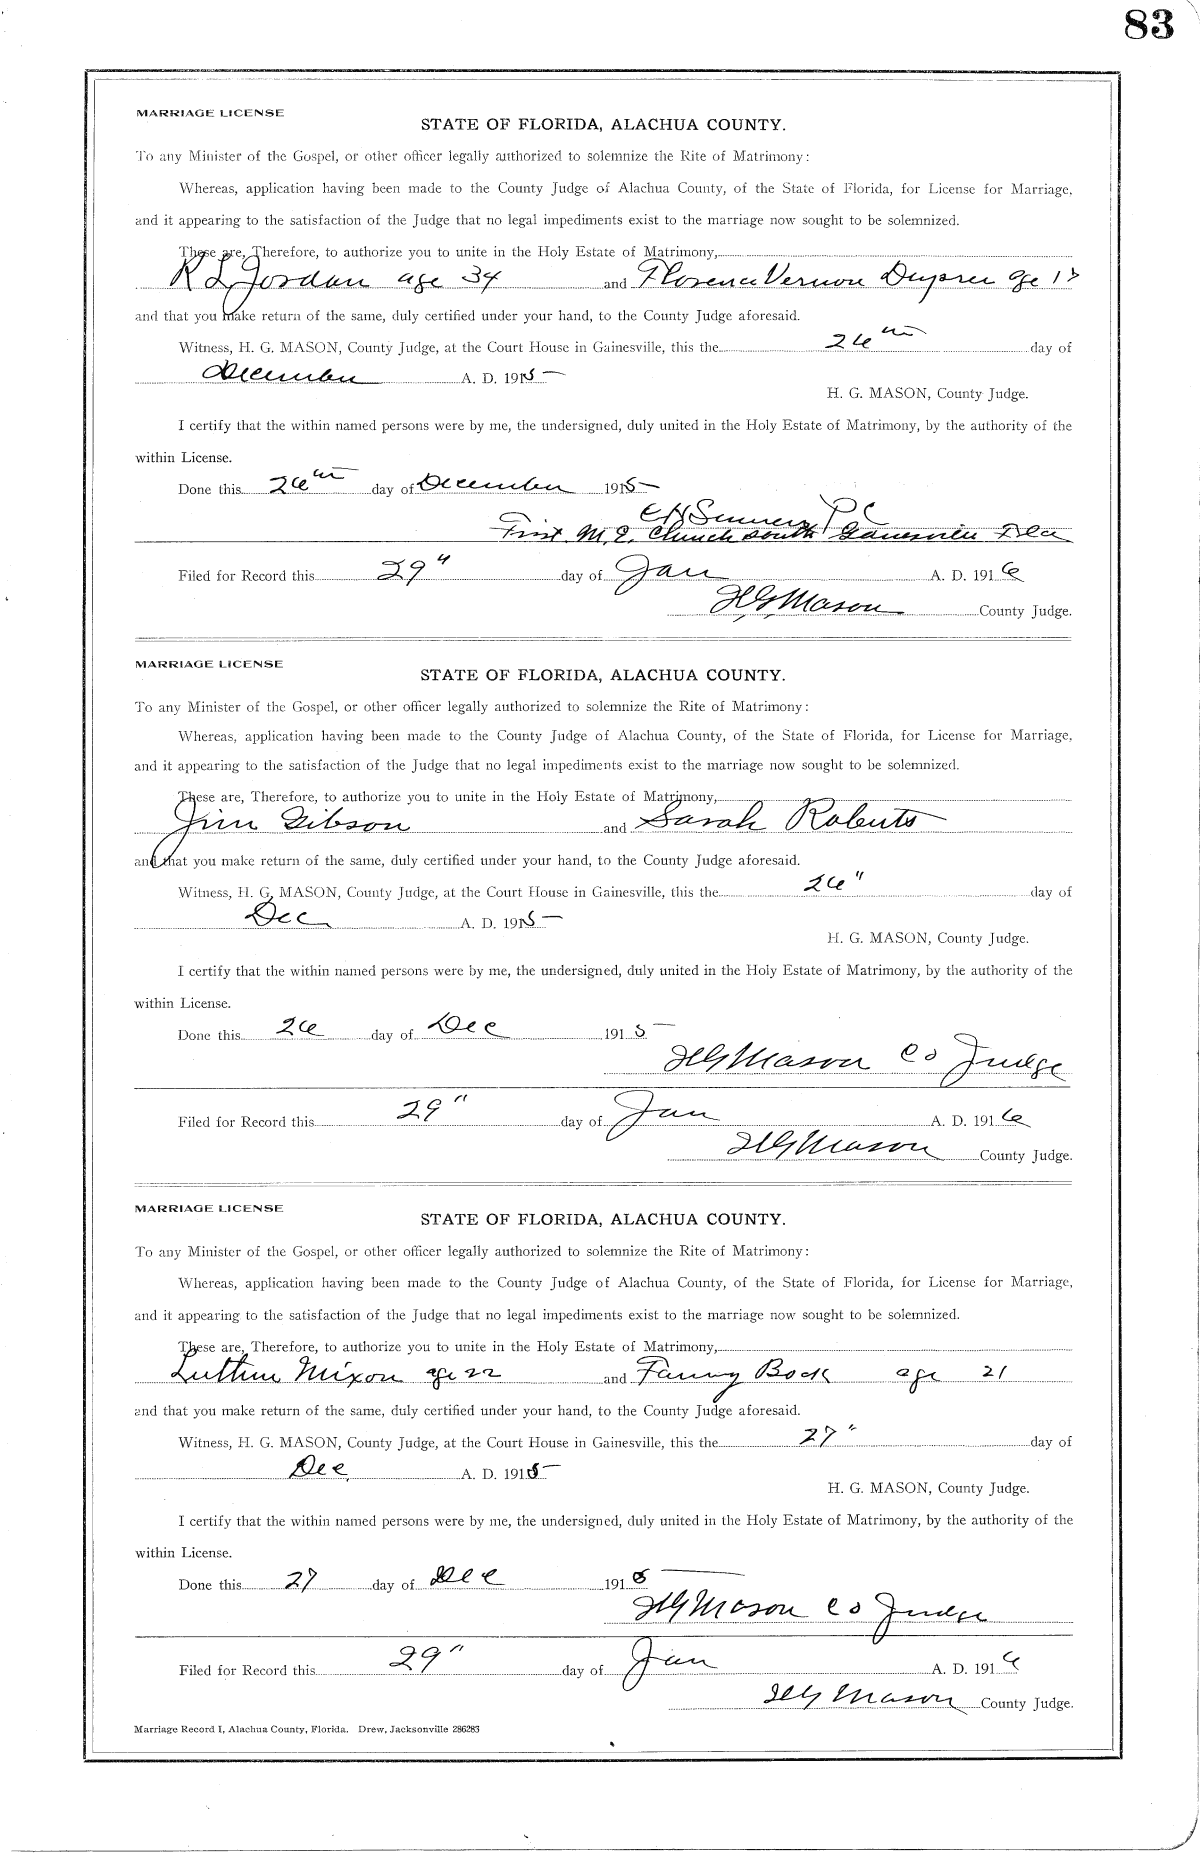 83
MARRIAGE LICENSE
STATE OF FLORIDA, ALACHUA COUNTY.
To any Minister of the Gospel, or other officer legally authorized to solemnize the Rite of Matrimony:
Whereas, application having been made to the County Judge of Alachua County, of the State of Florida, for License for Marriage,
and it appearing to the satisfaction of the Judge that no legal impediments exist to the marriage now sought to be solemnized.
These are, Therefore, to authorize you to unite in the Holy Estate of Matrimony,
R L Jordan age 34 and Florence Vernon Dupree age
and that you make return of the same, duly certified under your hand, to the County Judge aforesaid.
Witness, H. G. MASON, County Judge, at the Court House in Gainesville, this the 26th day of
December A. D. 1915
H. G. MASON, County Judge.
I certify that the within named persons were by me, the undersigned, duly united in the Holy Estate of Matrimony, by the authority of the
within License.
Done this 26th day of December 1915
P C
First M. E. Church South Gainesville Fla
Filed for Record this 29" day of Jan A. D. 1916
H G Mason County Judge.
MARRIAGE LICENSE
STATE OF FLORIDA, ALACHUA COUNTY.
To any Minister of the Gospel, or other officer legally authorized to solemnize the Rite of Matrimony:
Whereas, application having been made to the County Judge of Alachua County, of the State of Florida, for License for Marriage,
and it appearing to the satisfaction of the Judge that no legal impediments exist to the marriage now sought to be solemnized.
These are, Therefore, to authorize you to unite in the Holy Estate of Matrimony,
Jim Gibson and Sarah Roberts
and that you make return of the same, duly certified under your hand, to the County Judge aforesaid.
Witness, H. G. MASON, County Judge, at the Court House in Gainesville, this the 26" day of
Dec A. D. 1915
H. G. MASON, County Judge.
I certify that the within named persons were by me, the undersigned, duly united in the Holy Estate of Matrimony, by the authority of the
within License.
Done this 26 day of Dec 1915
H G Mason Co Judge
Filed for Record this 29" day of Jan A. D. 1916
H G Mason County Judge.
MARRIAGE LICENSE
STATE OF FLORIDA, ALACHUA COUNTY.
To any Minister of the Gospel, or other officer legally authorized to solemnize the Rite of Matrimony:
Whereas, application having been made to the County Judge of Alachua County, of the State of Florida, for License for Marriage,
and it appearing to the satisfaction of the Judge that no legal impediments exist to the marriage now sought to be solemnized.
These are, Therefore, to authorize you to unite in the Holy Estate of Matrimony,
Luther Mixon age 22 and Fanny Bock age 21
and that you make return of the same, duly certified under your hand, to the County Judge aforesaid.
Witness, H. G. MASON, County Judge, at the Court House in Gainesville, this the 27" day of
Dec A. D. 1915
H. G. MASON, County Judge.
I certify that the within named persons were by me, the undersigned, duly united in the Holy Estate of Matrimony, by the authority of the
within License.
Done this 27 day of Dec 1915
H G Mason Co Judge
Filed for Record this 29" day of Jan A. D. 1916
H G Mason County Judge.
Marriage Record I, Alachua County, Florida. Drew, Jacksonville 286283